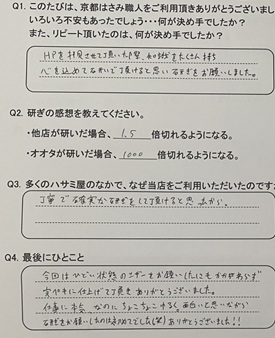 Q1. このたびは、京都はさみ職人をご利用頂きありがとうございまし
いろいろ不安もあったでしょう・・・何が決め手でしたか？
また、リピート頂いたのは、何が決め手でしたか？
HPを拝見させて頂いた際、
心を込めて研いで頂けると思い お願いしました。
Q2. 研ぎの感想を教えてください。
・他店が研いだ場合、1.5 倍切れるようになる。
・オオタが研いだ場合、1000 倍切れるようになる。
Q3. 多くのハサミ屋のなかで、なぜ当店をご利用いただいたのですか
丁寧で確実な研ぎをして頂けると思ったから。
Q4. 最後にひとこと
今回はひどい状態のシザーをお願いしたにもかかわらず
完ペキに仕上げて頂きありがとうございました。
仕事に なのに ちょこちょこ 面白いと思いながら
研ぎをお願いしたのは初めてでした(笑) ありがとうございました!!